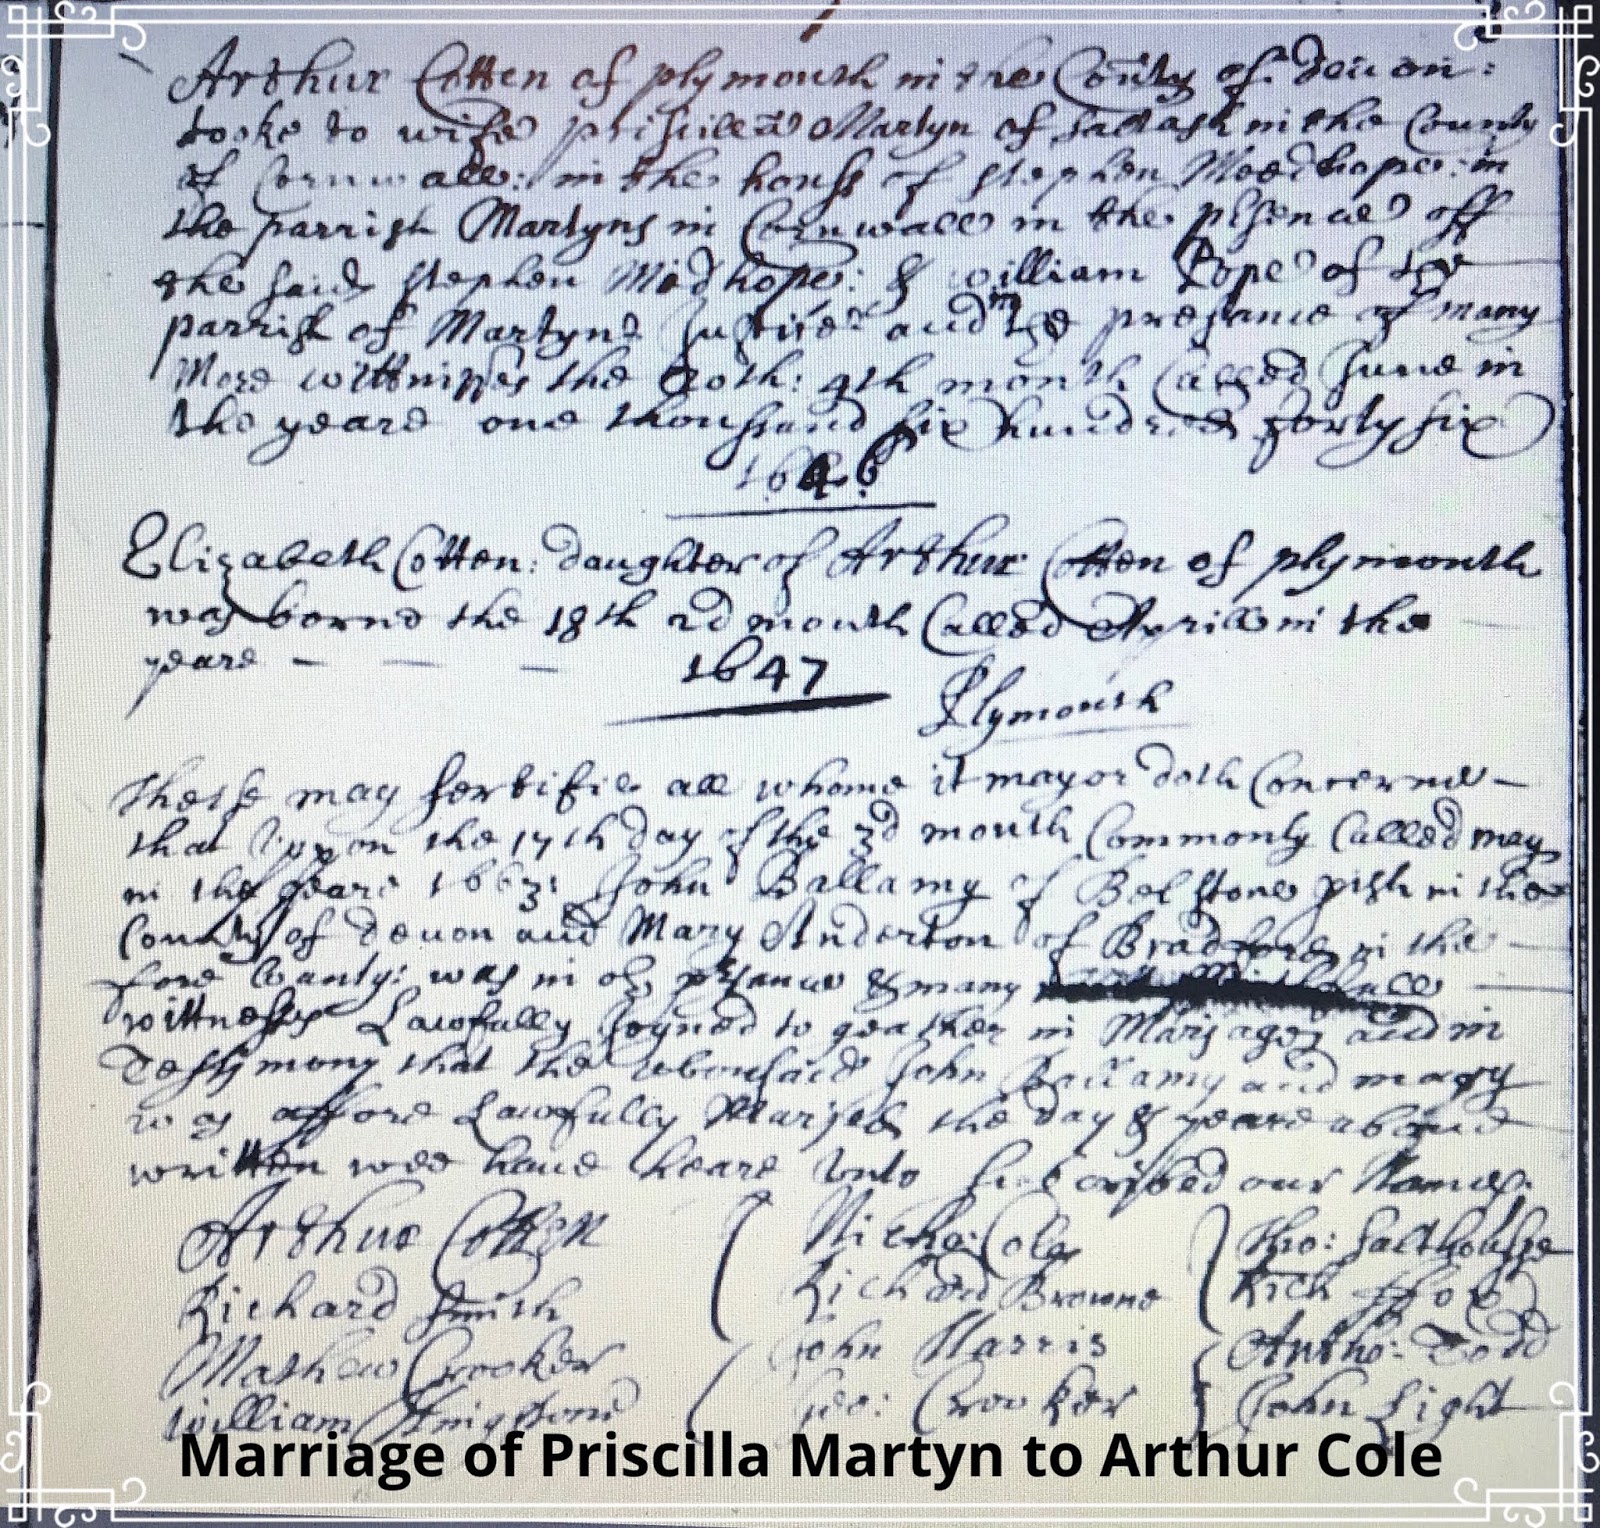 Arthur Cotten of plymouth in the County of devon:
tooke to wife prissilla Martyn of saltash in the County
of Cornwall: in the house of stephen Medhope: in
the parrish Martyns in Cornwall in the psence off
the said stephen Medhope: & william Pope of the
parrish of Martyns Justice and in the presance of many
More wittnisses the 20th: 4th month Called June in
the yeare one thoussand six hundred forty six
1646
Elizabeth Cotten: daughter of Arthur Cotten of plymouth
was borne the 18th 2d mouth Called Aprill in the
yeare — — — 1647
Plymouth
These may sertifie all whome it may or doth Concerne —
that uppon the 17th day of the 3d mouth Commonly Called may
in the yeare 1663: John Ballamy of Belstone pish in the
County of devon and Mary Anderton of Bradford in the
fore County: was in our psance & many
wittnesses Lawfully Joyned to geather in Mariage and in
Testimony that the abousaid John Ballamy and mary
was affore Lawfully Maried the day & yeare aboue
written wee haue heare unto subscribed our Names.
Arthur Cotten Nicho: Cole Tho: Salthousse
Richard Smith Richard Browne Rich ffox
Mathew Crooker John Harris Antho: Todd
William Geo: Crooker John Light
Marriage of Priscilla Martyn to Arthur Cole